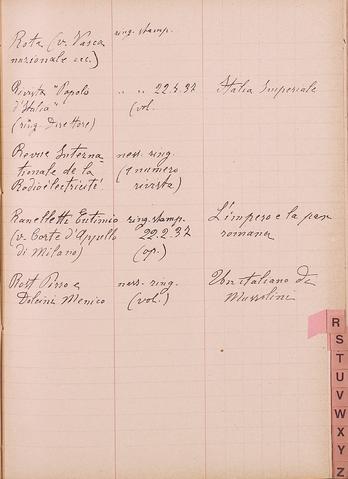 Rota (v. Vasca ring. stamp.
nazionale ecc.)
Rivista "Popolo " " 22.4.37 Italia Imperiale
d'Italia" (vol.
(ring. Direttore)
Revue Interna- ness. ring.
tionale de la (1 numero
Radioélectricité rivista)
Ranelletti Eutimio ring. stamp. L'impero e la pax
(v. Corte d'Appello 22.2.37 romana
di Milano) (op.)
Rost Pirro e ness. ring. Un italiano di
Dolcini Menico (vol.) Mussolini
R
S
T
U
V
W
X
Y
Z